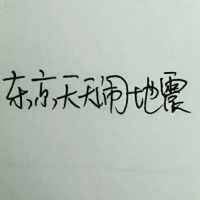 东京天天闹地震